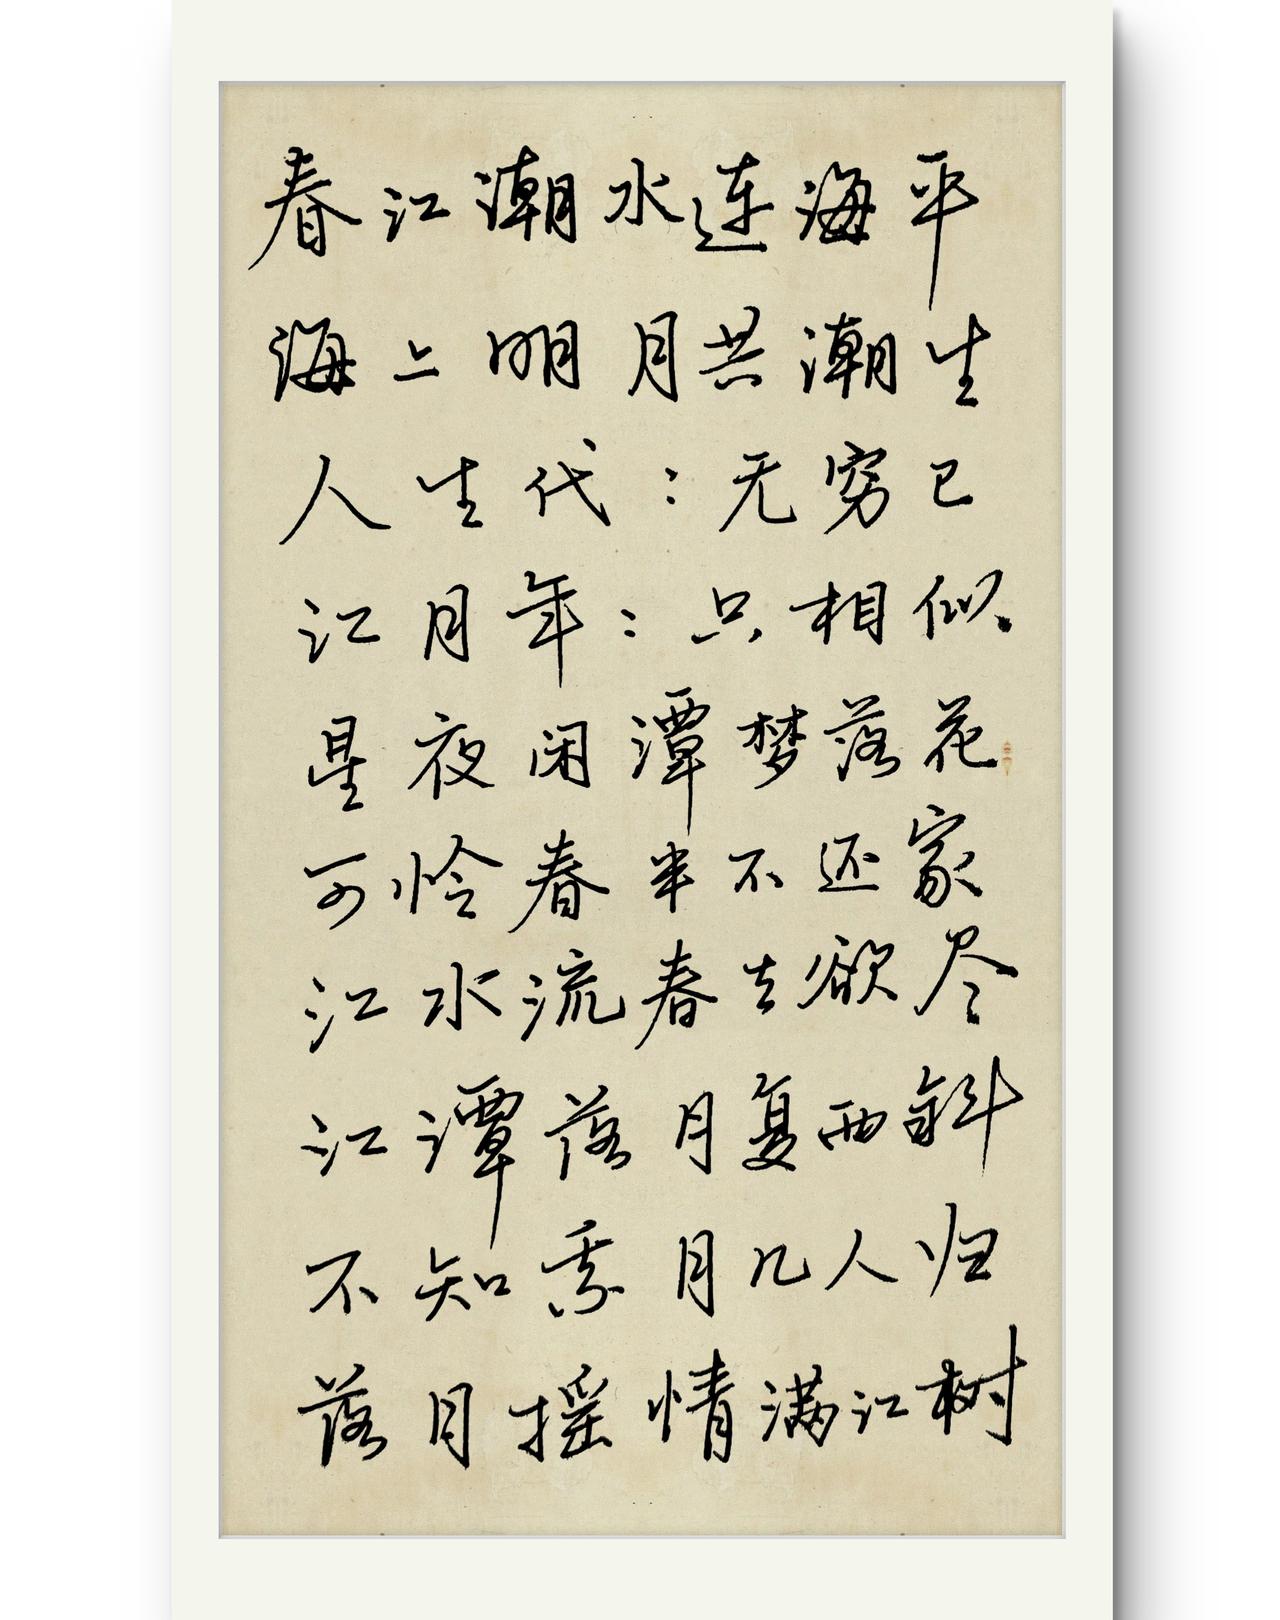 春江潮水连海平
海上明月共潮生
人生代：无穷已
江月年：只相似
星夜闲潭梦落花
可怜春半不还家
江水流春去欲尽
江潭落月复西斜
不知乘月几人归
落月摇情满江树